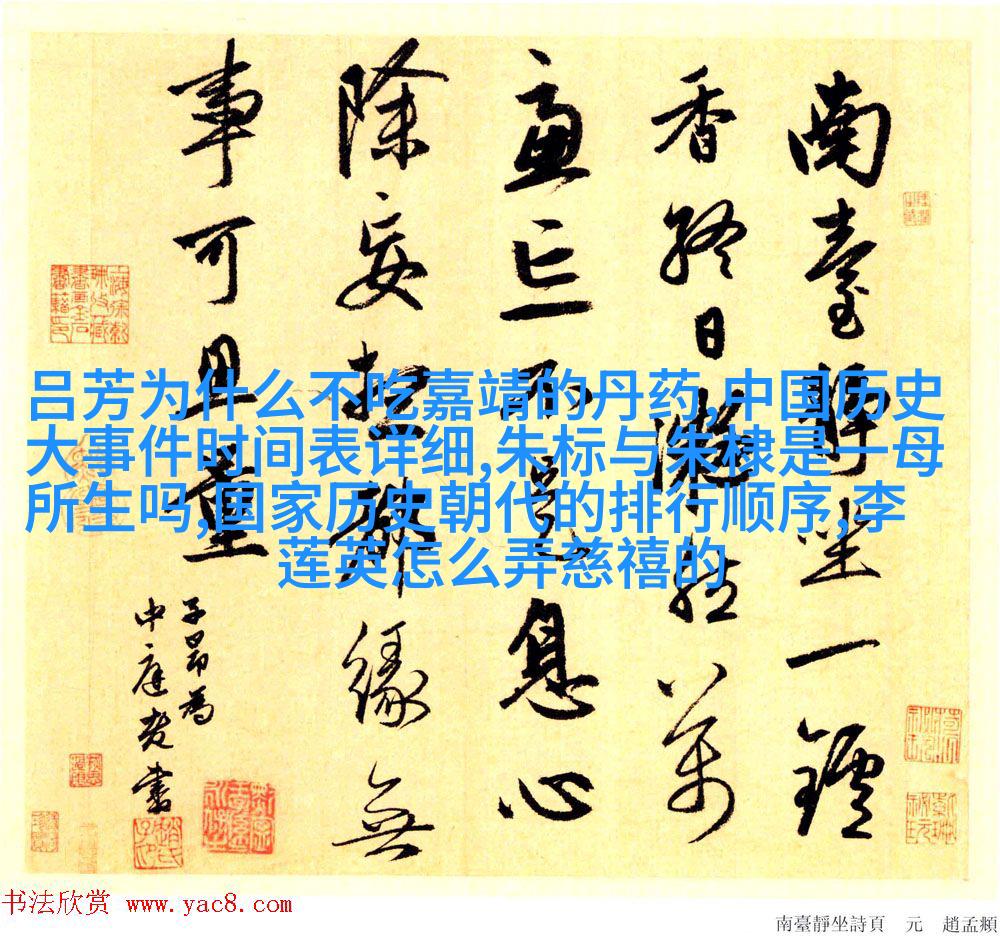 南臺靜坐一鑪
香終日凝然萬
慮亡不是息心
除妄想都緣無
事可思量
子昂為
中庭老書
吕芳为什么不吃嘉靖的丹药,中国历史
大事件时间表详细,朱标与朱棣是一母
所生吗,国家历史朝代的排行顺序,李
莲英怎么弄慈禧的
书法欣赏 www.yac8.com
南臺靜坐詩頁 元 趙孟頫